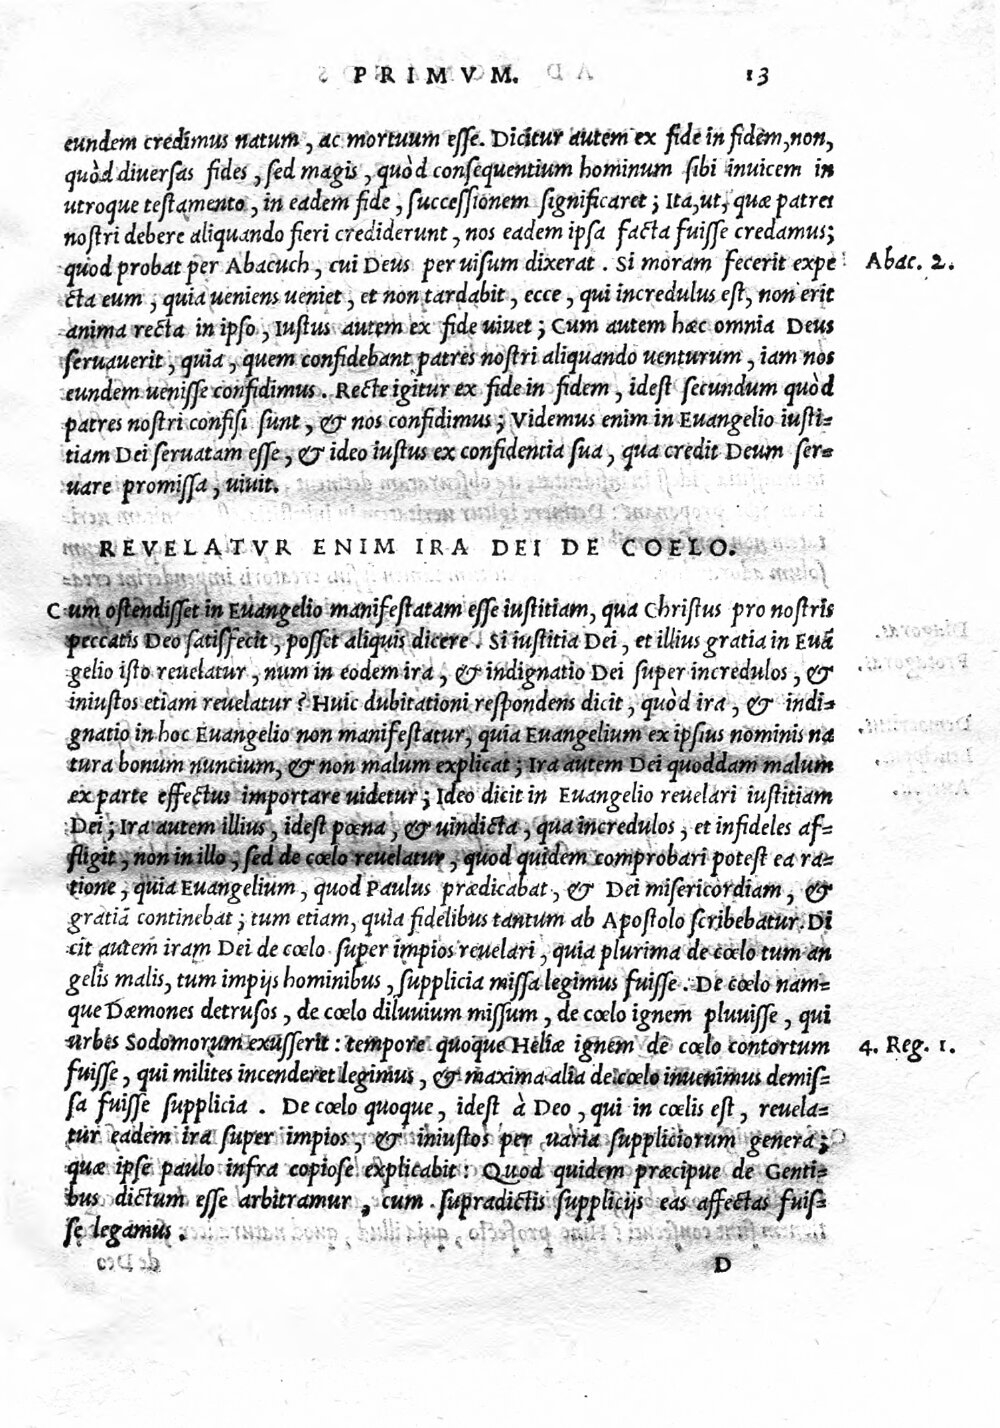 PRIMVM. 13
eundem credimus natum, ac mortuum esse. Dicitur autem ex fide in fidem, non,
quòd diuersas fides, sed magis, quòd consequentium hominum sibi inuicem in
utroque testamento, in eadem fide, successionem significaret; Ita, ut, quæ patres
nostri debere aliquando fieri crediderunt, nos eadem ipsa facta fuisse credamus;
quod probat per Abacuch, cui Deus per uisum dixerat. Si moram fecerit expe
Abac. 2.
cta eum, quia ueniens ueniet, et non tardabit, ecce, qui incredulus est, non erit
anima recta in ipso, Iustus autem ex fide uiuet; Cum autem hæc omnia Deus
seruauerit, quia, quem confidebant patres nostri aliquando uenturum, iam nos
eundem uenisse confidimus. Recte igitur ex fide in fidem, idest secundum quòd
patres nostri confisi sunt, & nos confidimus; Videmus enim in Euangelio iusti-
tiam Dei seruatam esse, & ideo iustus ex confidentia sua, qua credit Deum ser-
uare promissa, uiuit.
REVELATVR ENIM IRA DEI DE COELO.
Cum ostendisset in Euangelio manifestatam esse iustitiam, qua Christus pro nostris
peccatis Deo satisfecit, posset aliquis dicere. Si iustitia Dei, et illius gratia in Euã
gelio isto reuelatur, num in eodem ira, & indignatio Dei super incredulos, &
iniustos etiam reuelatur? Huic dubitationi respondens dicit, quòd ira, & indi-
gnatio in hoc Euangelio non manifestatur, quia Euangelium ex ipsius nominis na
tura bonum nuncium, & non malum explicat; Ira autem Dei quoddam malum
ex parte effectus importare uidetur; Ideo dicit in Euangelio reuelari iustitiam
Dei; Ira autem illius, idest pœna, & uindicta, qua incredulos, et infideles af-
fligit, non in illo, sed de cœlo reuelatur, quod quidem comprobari potest ea ra-
tione, quia Euangelium, quod Paulus prædicabat, & Dei misericordiam, &
gratiã continebat; tum etiam, quia fidelibus tantum ab Apostolo scribebatur. Di
cit autem iram Dei de cœlo super impios reuelari, quia plurima de cœlo tum an
gelis malis, tum impijs hominibus, supplicia missa legimus fuisse. De cœlo nam-
que Dæmones detrusos, de cœlo diluuium missum, de cœlo ignem pluuisse, qui
urbes Sodomorum exusserit: tempore quoque Heliæ ignem de cœlo contortum
4. Reg. 1.
fuisse, qui milites incenderet legimus, & maxima alia de cœlo inuenimus demis-
sa fuisse supplicia. De cœlo quoque, idest à Deo, qui in cœlis est, reuela-
tur eadem ira super impios, & iniustos per uaria suppliciorum genera;
quæ ipse paulo infra copiose explicabit: Quod quidem præcipue de Genti-
bus dictum esse arbitramur, cum supradictis supplicijs eas affectas fuis-
se legamus.
D